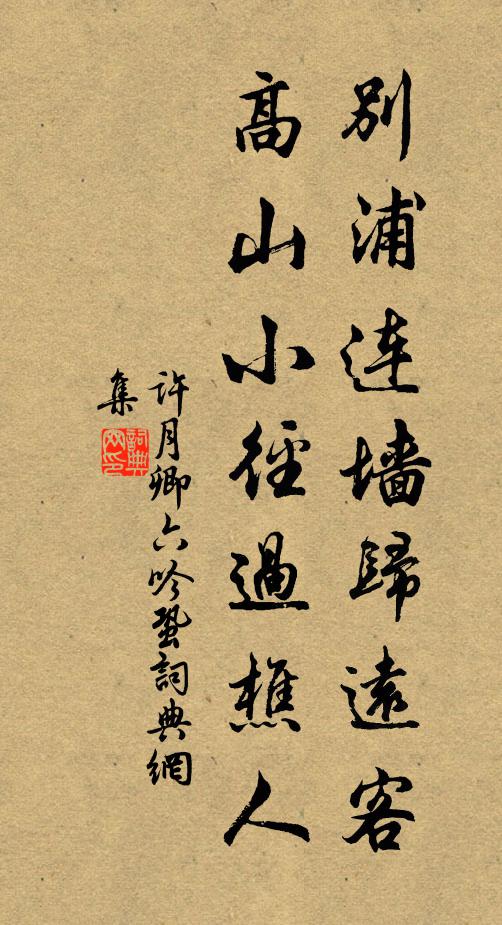 別浦連墻歸遠客
高山小徑過樵人
許月卿六吟蛩詞典網
集
詞典網印